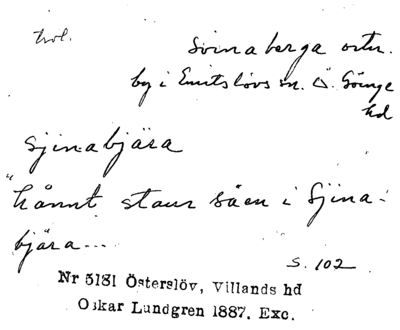 trol.
Svinaberga ortn.
by i Emitslövs sn. Ö. Göinge
hd
Sjinabjära
"hånnt staur såen i Sjina-
bjära...
S. 102
Nr 5181 Österslöv, Villands hd
Oskar Lundgren 1887. Exc.